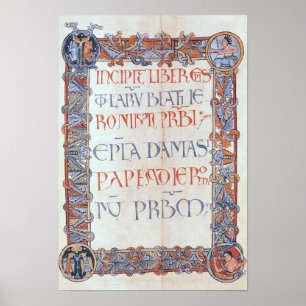 INCIPIT LIBER EPS
TLARV BEATI IE
RONIMI PRBI
EPLA DAMAS
PAPE AD IERO
NV PRBM